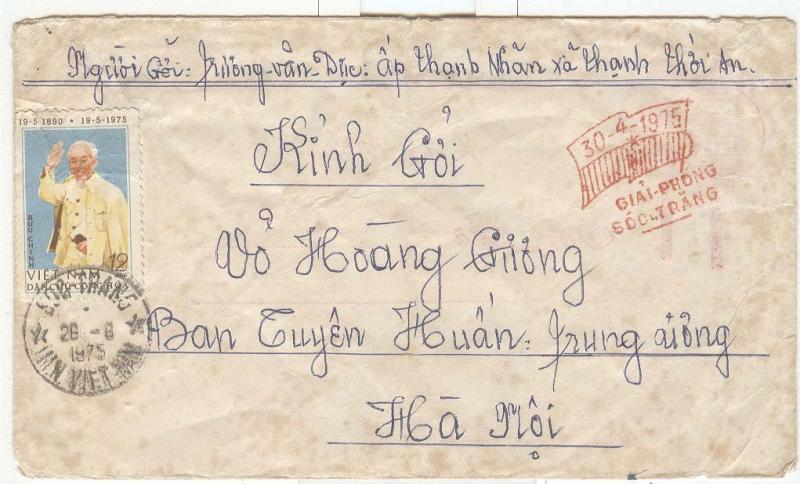 Người Gởi: Trương-văn-Dục: ấp Thạnh Nhãn xã Thạnh Thới An.
19-5-1890 * 19-5-1975
BƯU CHÍNH
12
VIỆT NAM
DÂN CHỦ CỘNG HÒA
SOC TRANG
28 -8
1975
M.N. VIET NAM
30-4-1975
GIẢI-PHÓNG
SÓC-TRĂNG
Kỉnh Gởi
Võ Hoàng Gương
Ban Tuyên Huấn: Trung ương
Hà Nội